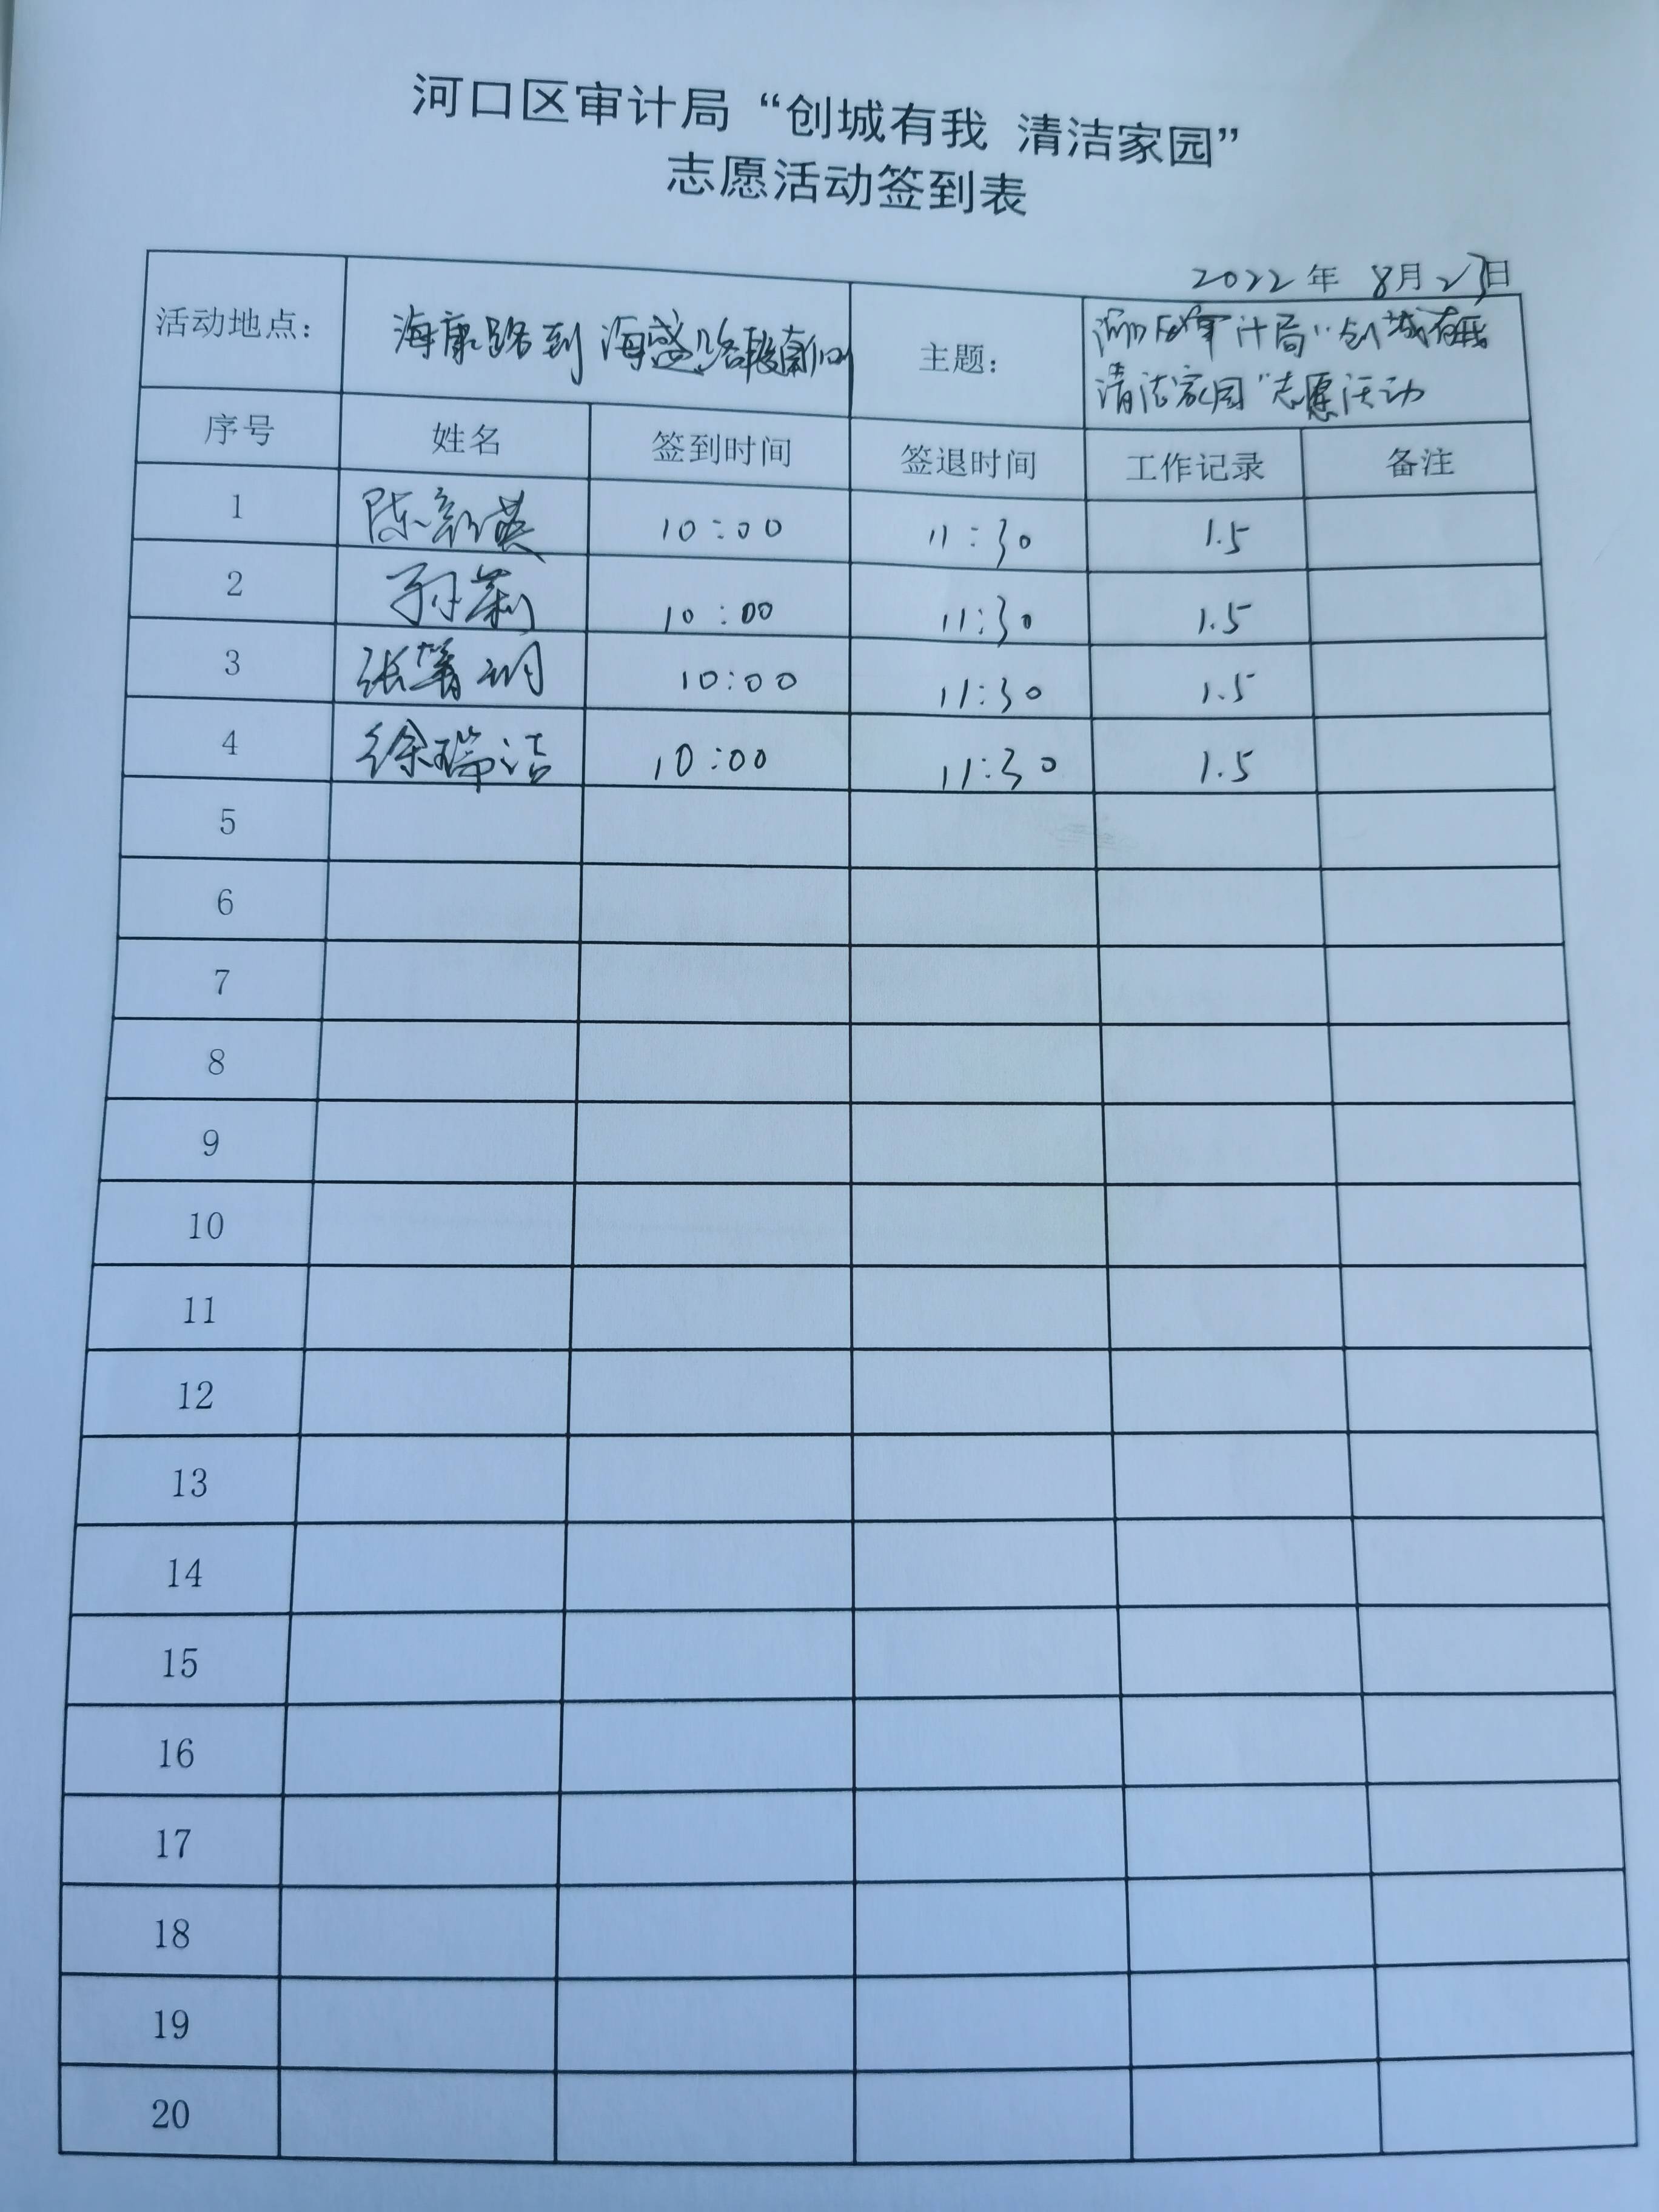 河口区审计局“创城有我 清洁家园”
志愿活动签到表
2022年 8月23日
活动地点： 海康路到海盛路段南 主题： 河口区审计局“创城有我
清洁家园”志愿活动
序号 姓名 签到时间 签退时间 工作记录 备注
1 陈新英 10:00 11:30 1.5
2 孙莉 10:00 11:30 1.5
3 张 10:00 11:30 1.5
4 徐瑞洁 10:00 11:30 1.5
5
6
7
8
9
10
11
12
13
14
15
16
17
18
19
20